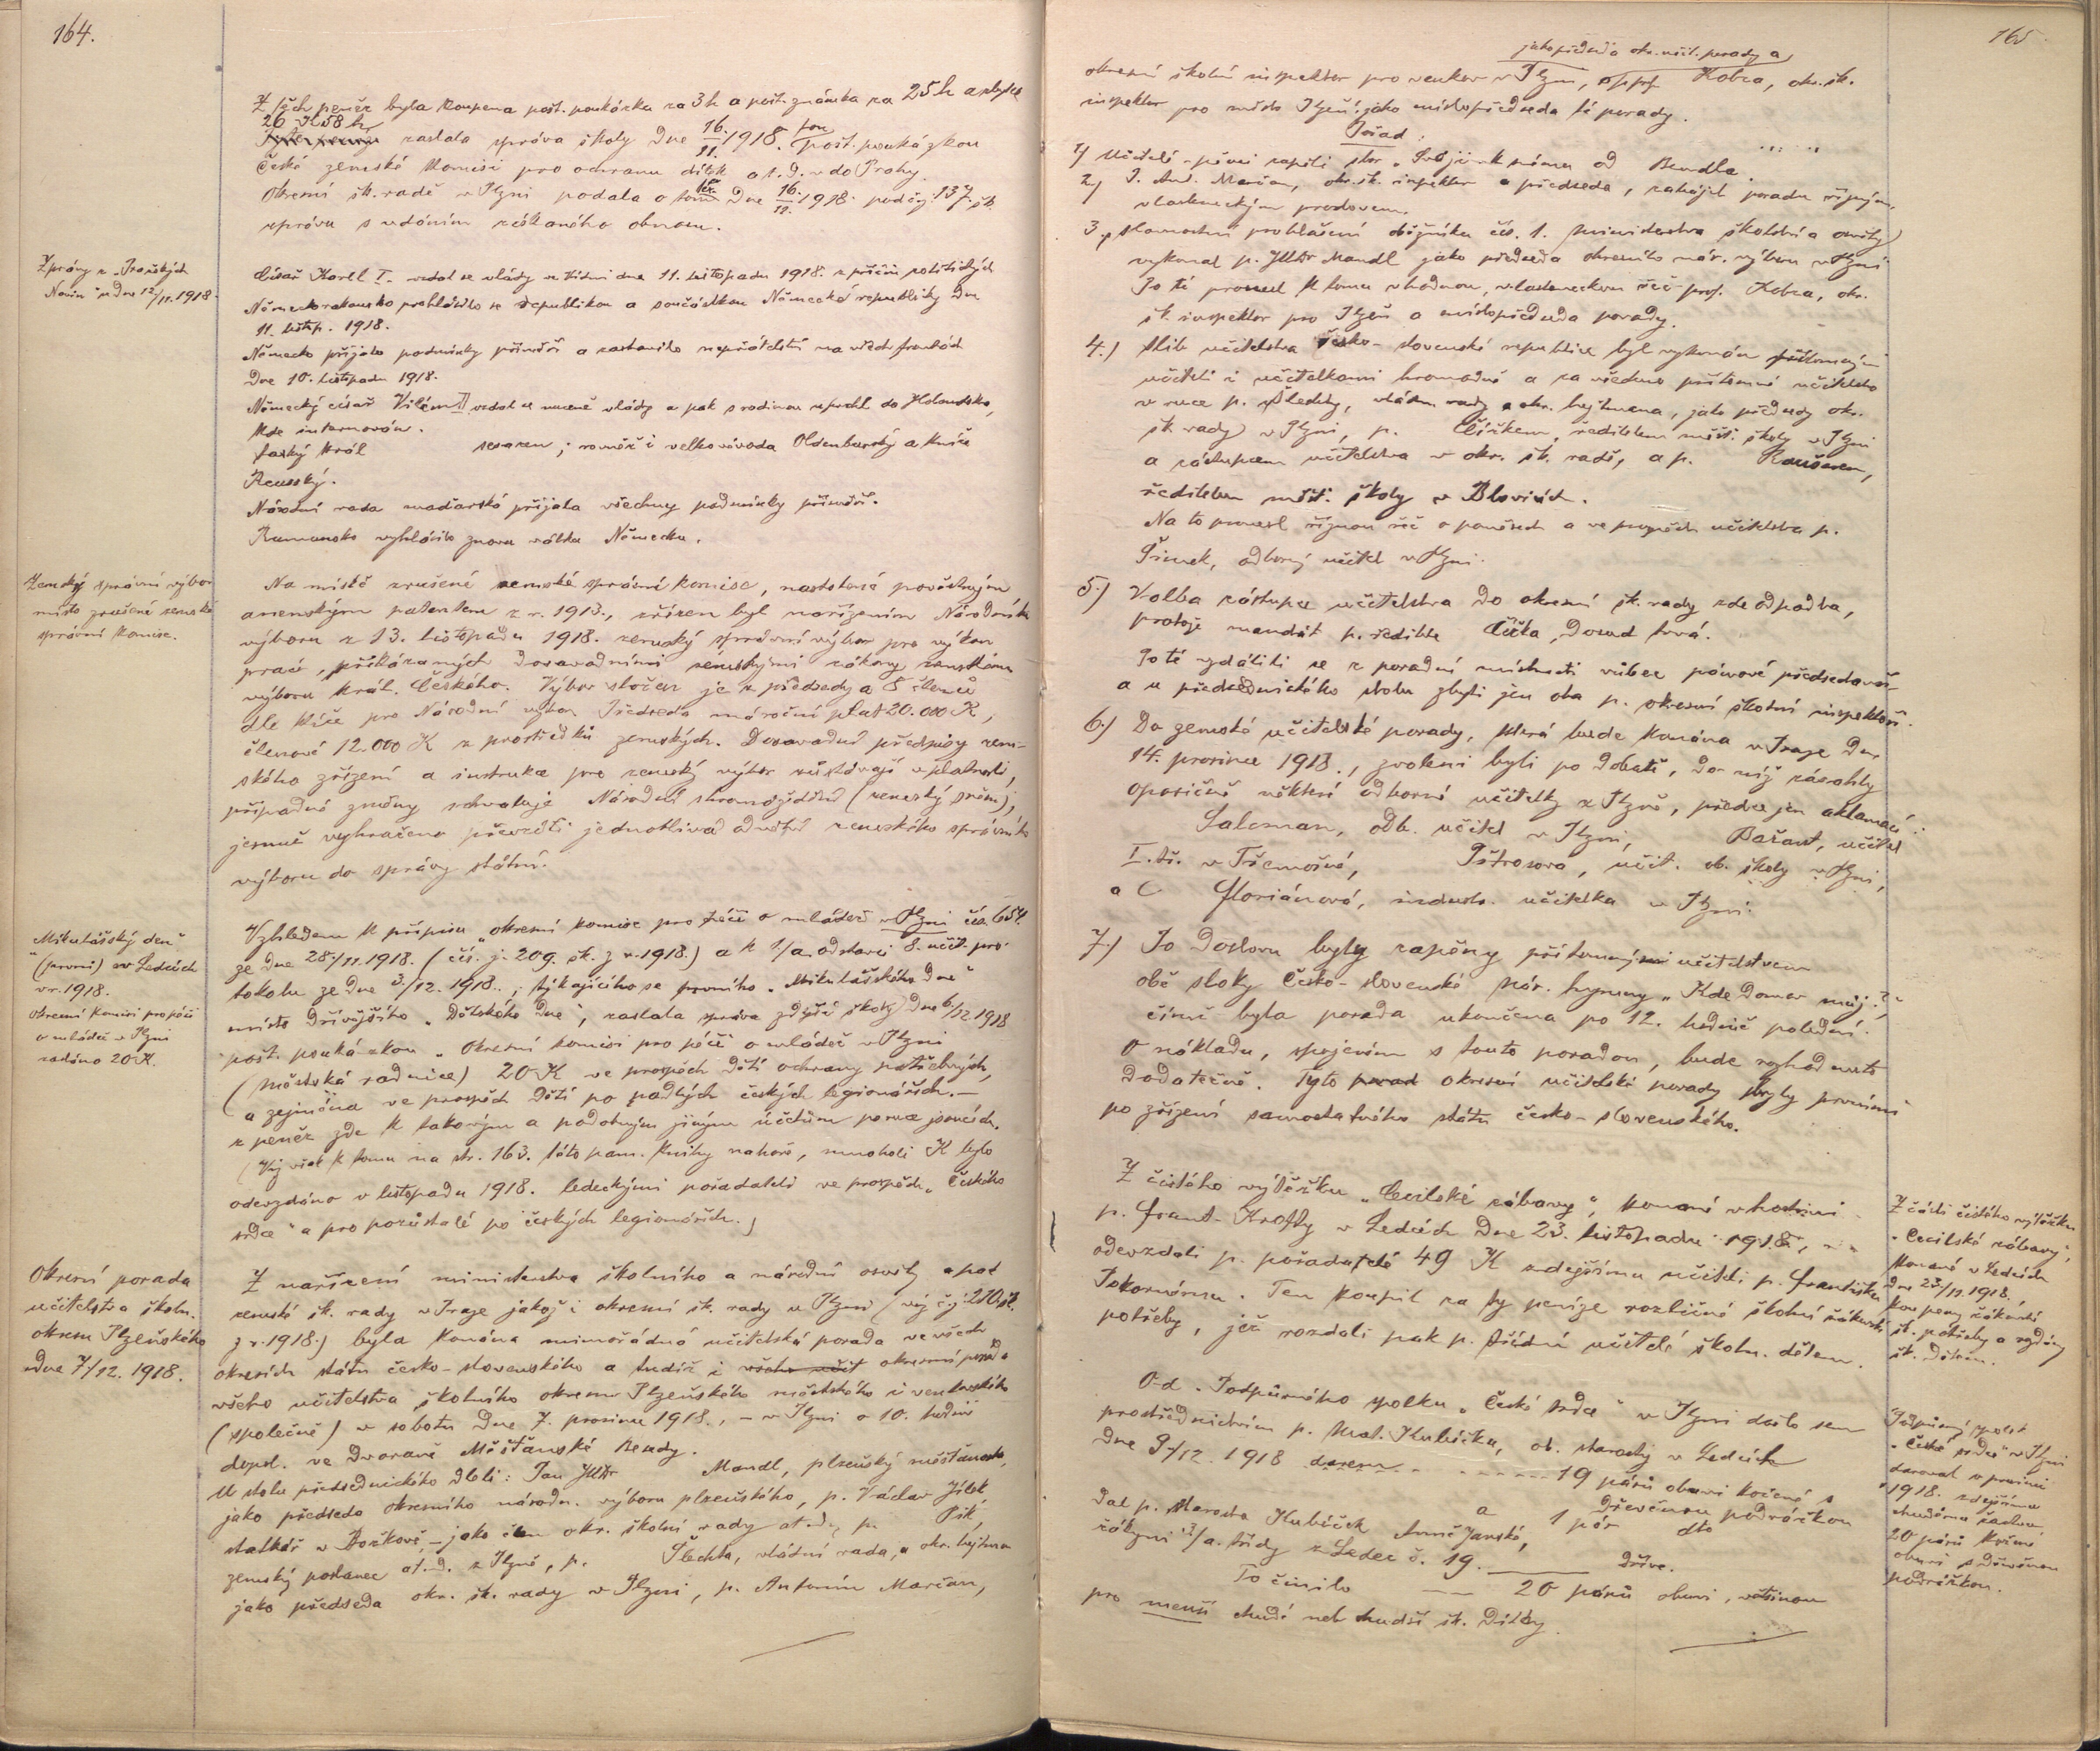 164.
Z těch peněz byla koupena pošt. poukázka za 3 h a pošt. známka za 25 h a zbytek
26 K 58 h,
zaslala správa školy dne 16./11. 1918. pošt. poukázkou
České zemské komisi pro ochranu dítek a t. d. v do Prahy.
Okresní šk. radě v Plzni podala o tom dne 16./12. 1918. pod čj. 137 šk.
zprávu s udáním získaného obnosu.
Zprávy z „Pražských
Novin“ z dne 12/11. 1918.
Císař Karel I. vzdal se vlády ve Vídni dne 11. listopadu 1918. z příčin politických
Německorakousko prohlásilo se republikou a součástkou Německé republiky dne
11. listop. 1918.
Německo přijalo podmínky příměří a zastavilo nepřátelství na všech frontách
dne 10. listopadu 1918.
Německý císař Vilém II. vzdal se vlády a pak s rodinou uprchl do Holandska,
kde internován.
saský král sesazen; rovněž i velkovévoda Oldenburský a kníže
Reusský.
Národní rada maďarská přijala všechny podmínky příměří.
Rumunsko vyhlásilo znovu válku Německu.
Zemský správní výbor
místo zrušené zemské
správní komise.
Na místě zrušené zemské správní komise, nastolené pověstným
anenským patentem z r. 1913., zřízen byl nařízením Národního
výboru z 13. listopadu 1918. zemský správní výbor pro výkon
prací, přikázaných dosavadními zemskými zákony zemskému
výboru král. Českého. Výbor složen je z předsedy a 8 členů
dle klíče pro Národní výbor. Předseda má roční plat 20.000 K,
členové 12.000 K z prostředků zemských. Dosavadní předpisy zem-
ského zřízení a instrukce pro zemský výbor zůstávají v platnosti,
případné změny schvaluje Národní shromáždění (zemský sněm);
jemuž vyhrazeno převzíti jednotlivá odvětví zemského správního
výboru do správy státní.
„Mikulášský den“
(první) v Ledcích
v r. 1918.
Okresní komisi pro péči
o mládež v Plzni
zasláno 20 K.
Vzhledem k přípisu „okresní komise pro péči o mládež v Plzni čís. 654.
ze dne 28./11. 1918. (čís. j. 209. šk. z r. 1918.) a k 1/a odstavci 8. učit. pro-
tokolu ze dne 3./12. 1918., týkajícího se prvního „Mikulášského dne“
místo dřívějšího „Dětského dne“, zaslala správa zdejší školy dne 6/12 1918
pošt. poukázkou „Okresní komisi pro péči“ o mládež v Plzni
(městská radnice) 20 K ve prospěch dětí ochrany potřebných,
a zejména ve prospěch dětí po padlých českých legionářích. –
z peněz zde k takovým a podobným jiným účelům po ruce jsoucích.
(Viz však k tomu na str. 163. této pam. knihy nahoře, mnoholi K bylo
odevzdáno v listopadu 1918. ledeckými pořadateli ve prospěch „Českého
srdce“ a pro pozůstalé po českých legionářích.)
Okresní porada
učitelstva školn.
okresu Plzeňského
dne 7/12. 1918.
Z nařízení ministerstva školního a národní osvěty a pod
zemské šk. rady v Praze jakož i okresní šk. rady v Plzni (viz č. j. 210 šk.
z r. 1918.) byla konána mimořádná učitelská porada ve všech
okresích státu česko-slovenského a tudíž i všeho učit okresní porada
všeho učitelstva školního okresu Plzeňského městského i venkovského
(společně) v sobotu dne 7. prosince 1918., – v Plzni o 10. hodině
dopol. ve dvoraně Měšťanské Besedy.
U stolu předsednického dleli: Pan JUDr Mandl, plzeňský měšťanosta,
jako předseda okresního národn. výboru plzeňského, p. Václav Jílek
statkář v Božkově, – jako člen okr. školní rady at.d., p. Pik,
zemský poslanec at.d. z Plzně, p. Šlechta, vládní rada, a okr. hejtman
jako předseda okr. šk. rady v Plzni, p. Antonín Marčan,
165
jako předseda okr. učit. porady a
okresní školní inspektor pro venkov v Plzni, prof. Kobza, okr. šk.
inspektor pro město Plzeň jako místopředseda té porady.
Pořad:
1) Učitelé-pěvci zapěli sbor „Svůj k svému od Bendla.
2) P. Ant. Marčan, okr. šk. inspektor a předseda, zahájil poradu řízným,
vlasteneckým proslovem.
3., Slavnostní prohlášení oběžníku čís. 1. ministerstva školství a osvěty
vykonal p. JUDr Mandl jako předseda okresního nár. výboru v Plzni
Po té pronesl k tomu vhodnou, vlasteneckou řeč prof. Kobza, okr.
šk. inspektor pro Plzeň a místopředseda porady.
4.) Slib učitelstva česko-slovenské republice byl vykonán přítomnými
učiteli i učitelkami hromadně a za všechno přítomné učitelstvo
v ruce p. Šlechty, vládn. rady a okr. hejtmana, jako předsedy okr.
šk. rady v Plzni, p. Čížkem, ředitelem měšť. školy v Plzni
a zástupcem učitelstva v okr. šk. radě, a p. Raušarem,
ředitelem měšť. školy v Blovicích.
Na to pronesl říznou řeč o poměrech a ve prospěch učitelstva p.
Šimek, odborný učitel v Plzni.
5.) Volba zástupce učitelstva do okresní šk. rady zde odpadla,
protože mandát p. ředitele Čížka, dosud trvá.
Po té vzdálili se z poradní místnosti vůbec pánové předsedové
a u předsednického stolu zbyli jen oba p. okresní školní inspektoři.
6.) Do zemské učitelské porady, která bude konána v Praze dne
14. prosince 1918., zvoleni byli po debatě, do níž zasáhly
oposičně některé odborné učitelky z Plzně, předem jen aklamací:
Saloman, odb. učitel v Plzni, Bařant, učitel
I. tř. v Třemošné, Pštrosová, učit. ob. školy v Plzni,
a C Floriánová, industr. učitelka v Plzni.
7.) Po doslovu byly zapěny přítomným učitelstvem
obě sloky česko-slovenské nár. hymny „Kde domov můj?“
čímž byla porada ukončena po 12. hodině polední.
O nákladu, spojeném s touto poradou, bude rozhodnuto
dodatečně. Tyto porad okresní učitelské porady byly prvními
po zřízení samostatného státu česko-slovenského.
Z čistého výtěžku „Cecilské zábavy“, konané v hostinci
p. Frant. Krofty v Ledcích dne 23. listopadu 1918.,
odevzdali p. pořadatelé 49 K zdejšímu učiteli p. Františku
Pokornému. Ten koupil za ty peníze rozličné školní žákovské
potřeby, jež rozdali pak p. třídní učitelé školn. dětem.
Z části čistého výtěžku
„Cecilské zábavy“,
konané v Ledcích
dne 23/11. 1918.
koupeny žákovské
šk. potřeby a rozdány
šk. dětem.
Od „Podpůrného spolku „České srdce“ v Plzni došlo sem
prostřednictvím p. Mat. Kubíčka, ob. starosty v Ledcích
dne 9./12. 1918 darem 19 párů obuvi kožené s
dřevěnou podrážkou
Dal p. starosta Kubíček Anně Janské, a 1 pár dto
žákyni 3/a. třídy z Ledec č. 19. dříve.
To činilo 20 párů obuvi, většinou
pro menší chudé neb chudší šk. dítky.
Podpůrný spolek
„České srdce“ v Plzni
daroval v prosinci
1918. zdejšímu
chudému žactvu
20 párů kožené
obuvi s dřevěnou
podrážkou.